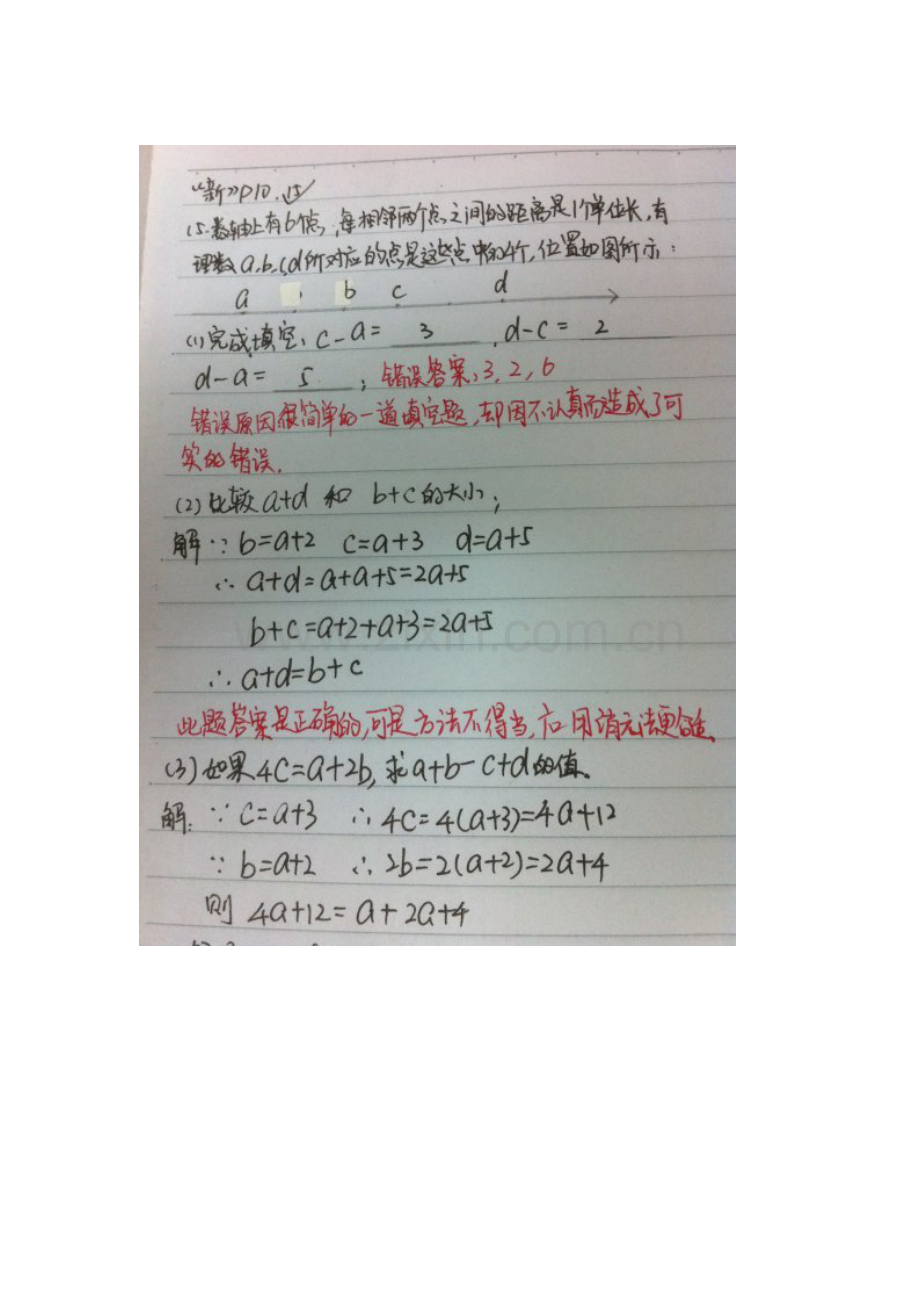 《新》P10.15
15.数轴上有6个点,每相邻两个点之间的距离是1个单位长,有
理数a.b.c.d所对应的点是这些点中的4个,位置如图所示:
a b c d
(1)完成填空:c-a= 3 ,d-c= 2
d-a= 5 ; 错误答案:3,2,6
错误原因很简单的一道填空题,却因不认真而造成了可
笑的错误.
(2)比较a+d 和 b+c的大小;
解∵b=a+2 c=a+3 d=a+5
∴a+d=a+a+5=2a+5
b+c=a+2+a+3=2a+5
∴a+d=b+c
此题答案是正确的,可是方法不得当,应用消元法更合适.
(3)如果4c=a+2b,求a+b-c+d的值.
解:∵c=a+3 ∴4c=4(a+3)=4a+12
∵b=a+2 ∴2b=2(a+2)=2a+4
则 4a+12=a+2a+4
www.zixin.com.cn